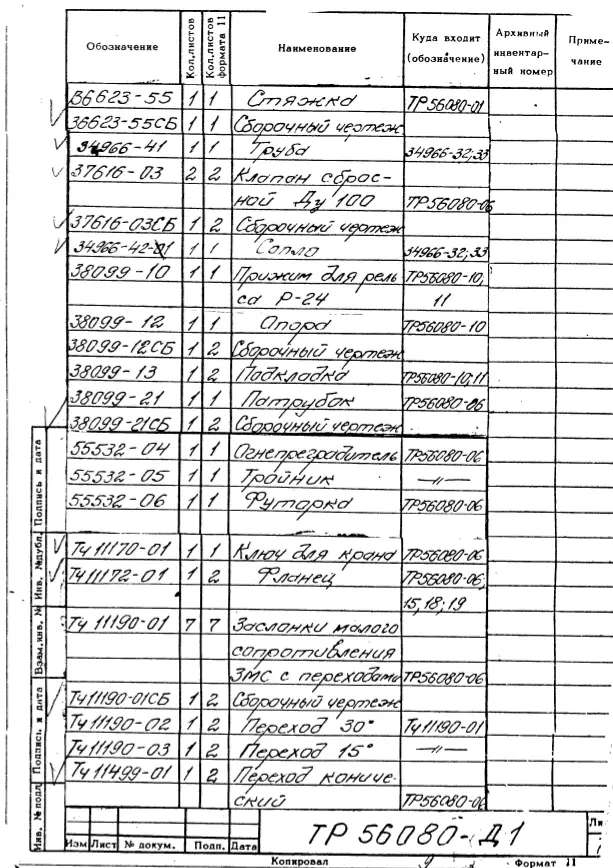 Обозначение Кол.листов Кол.листов формата 11 Наименование Куда входит (обозначение) Архивный инвентарный номер Примечание
36623-55 1 1 Стяжка ТР56080-01
36623-55СБ 1 1 Сборочный чертеж
34966-41 1 1 Труба 34966-32;33
37616-03 2 2 Клапан сброс-
ной Ду 100 ТР56080-06
37616-03СБ 1 2 Сборочный чертеж
34966-42-01 1 1 Сопло 34966-32;33
38099-10 1 1 Прижим для рель ТР56080-10,
са Р-24 11
38099-12 1 1 Опора ТР56080-10
38099-12СБ 1 2 Сборочный чертеж
38099-13 1 2 Подкладка ТР56080-10;11
38099-21 1 1 Патрубок ТР56080-06
38099-21СБ 1 2 Сборочный чертеж
55532-04 1 1 Огнепреградитель ТР56080-06
55532-05 1 1 Тройник —"—
55532-06 1 1 Футорка ТР56080-06
ТЧ 11170-01 1 1 Ключ для крана ТР56080-06
ТЧ 11172-01 1 2 Фланец ТР56080-06;
15;18;19
ТЧ 11190-01 7 7 Заслонки малого
сопротивления
ЗМС с переходами ТР56080-06
ТЧ 11190-01СБ 1 2 Сборочный чертеж
ТЧ 11190-02 1 2 Переход 30° ТЧ 11190-01
ТЧ 11190-03 1 2 Переход 15° —"—
ТЧ 11499-01 1 2 Переход кониче-
ский ТР56080-06
Инв. № подл. Подпись и дата Взам.инв. № Инв. №дубл. Подпись и дата
Изм Лист № докум. Подп. Дата
ТР 56080-Д1
Ли
Копировал Формат 11